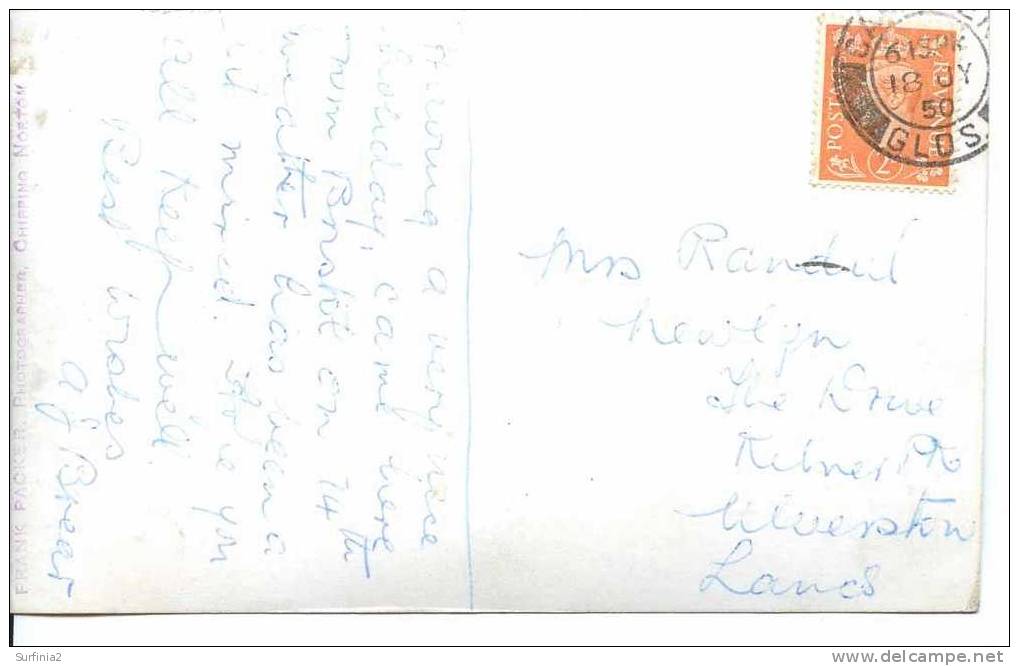 Having a very nice
holiday, came here
from Bristol on 14th
weather has been a
bit mixed. Hope you
all keep well
Best wishes
A J Brear
FRANK PACKER, PHOTOGRAPHER, CHIPPING NORTON
6 15 PM
18 JY
50
GLOS
POSTAGE
REVENUE
2D
Mrs Randal
Newlyn
The Drive
Kilner Pk
Ulverston
Lancs
Surfinia2
delcampe.net